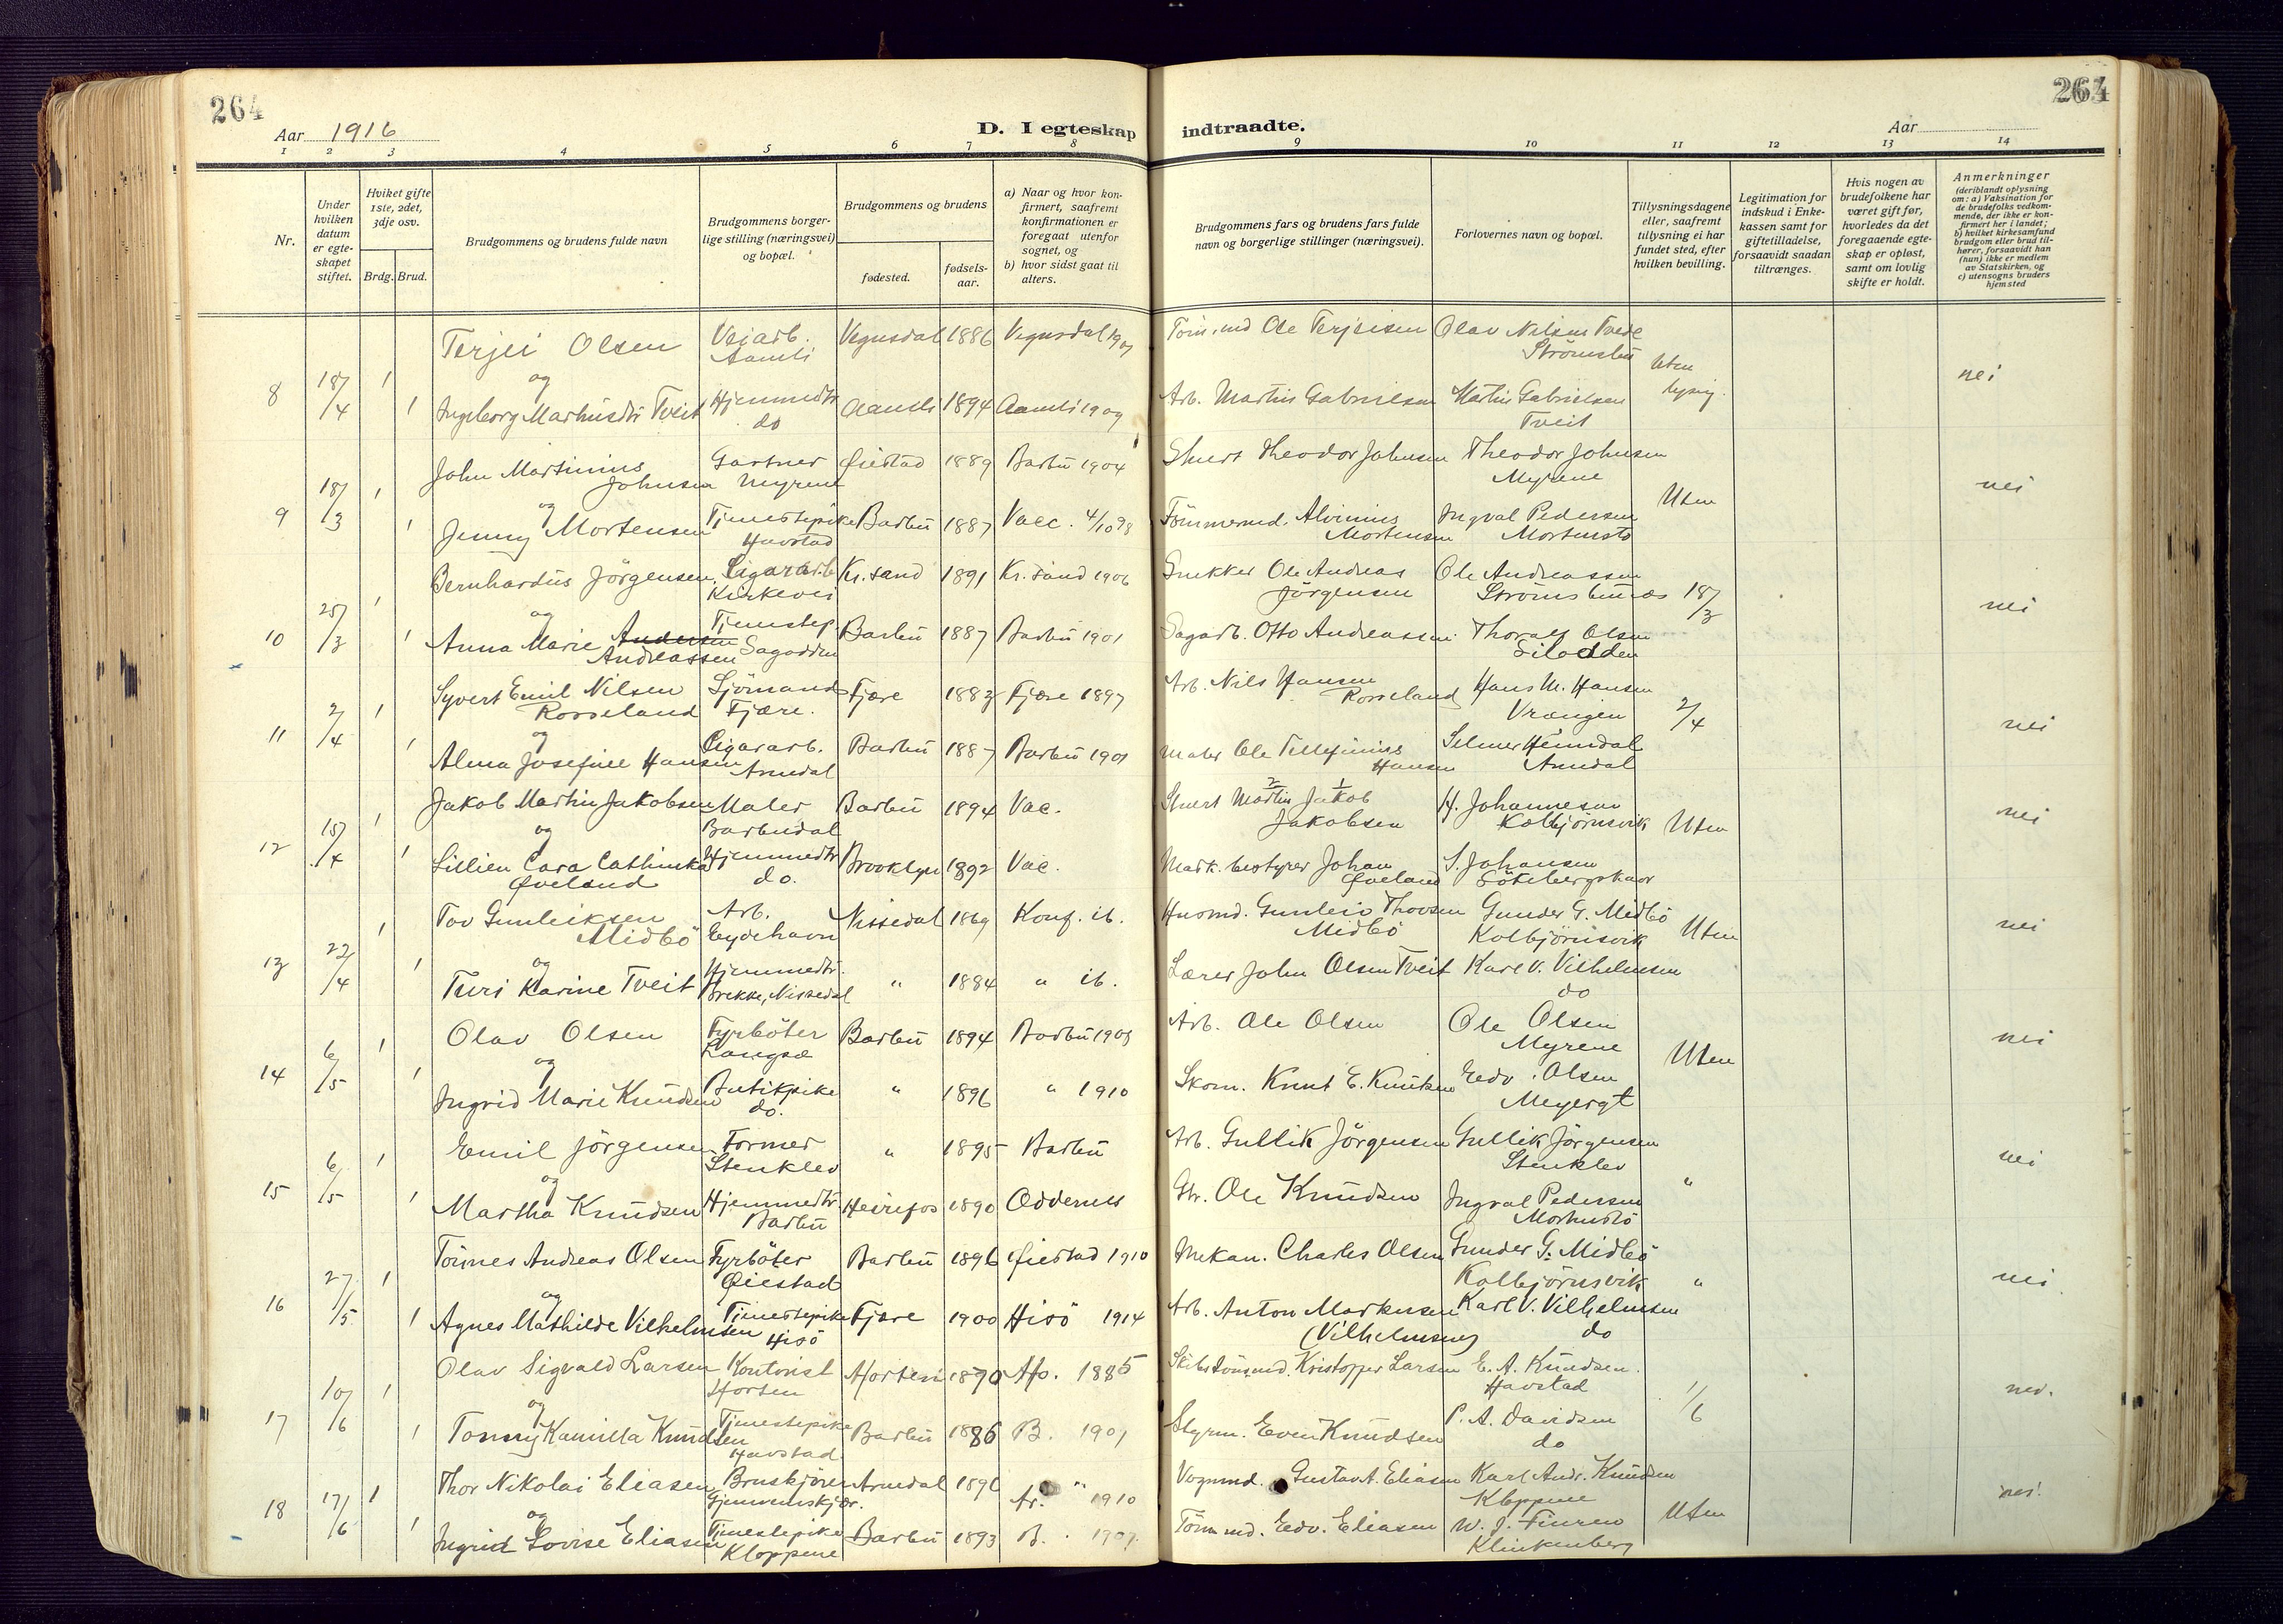 264
Aar 1916
D. I egteskap
indtraadte.
Aar
264
1 2 3 4 5 6 7 8 9 10 11 12 13 14
Nr.
Under hvilken datum er egteskapet stiftet.
Hviket gifte 1ste, 2det, 3dje osv.
Brdg. Brud.
Brudgommens og brudens fulde navn
Brudgommens borgerlige stilling (næringsvei) og bopæl.
Brudgommens og brudens
fødested.
fødselsaar.
a) Naar og hvor konfirmert, saafremt konfirmationen er foregaat utenfor sognet, og
b) hvor sidst gaat til alters.
Brudgommens fars og brudens fars fulde navn og borgerlige stillinger (næringsvei).
Forlovernes navn og bopæl.
Tillysningsdagene eller, saafremt tillysning ei har fundet sted, efter hvilken bevilling.
Legitimation for indskud i Enkekassen samt for giftetilladelse, forsaavidt saadan tiltrænges.
Hvis nogen av brudefolkene har været gift før, hvorledes da det foregaaende egteskap er opløst, samt om lovlig skifte er holdt.
Anmerkninger
(deriblandt oplysning om: a) Vaksination for de brudefolks vedkommende, der ikke er konfirmert her i landet;
b) hvilket kirkesamfund brudgom eller brud tilhører, forsaavidt han (hun) ikke er medlem av Statskirken, og
c) utensogns bruders hjemsted
Terjei Olsen Veiarb. Aamli Vegusdal 1886 Vegusdal 1901 Tøm.md Ole Terjeisen Olav Nilsen Tvede Strømsbu
8 18/4 1 1 og Uten lysnig. nei
Ingeborg Markusdtr Tveit Hjemmedtr do Aamli 1894 Aamli 1909 Arb. Martin Gabrielsen Martin Gabrielsen Tveit
John Martinius Johnsen Gartner Myrene Øiestad 1889 Barbu 1904 Skuert Theodor Johnsen Theodor Johnsen Myrene
9 18/3 1 1 og Uten nei
Jenny Mortensen Tjenestepike Havstad Barbu 1887 Vacc. 4/10 98 Tømmermd. Alvinius Mortensen Ingval Pedersen Mortensto
Bernhardus Jörgensen Cigararb Kirkevei Kr.sand 1891 Kr.sand 1906 Snekker Ole Andreas Jörgensen Ole Andreassen Strømsbunæs
10 25/3 1 1 og 18/3 nei
Anna Marie Andersen Andreassen Tjenestep. Sagodden Barbu 1887 Barbu 1901 Sagarb. Otto Andreassen Thoralf Olsen Silodden
Syvert Emil Nilsen Rosseland Sjömand Fjære. Fjære 1883 Fjære 1897 Arb. Nils Hansen Rosseland Hans M. Hansen Vrængen
11 2/4 1 1 og 2/4 nei
Alma Josefine Hansen Cigararb. Arendal Barbu 1887 Barbu 1901 Maler Ole Tellefinius Hansen Selmer Hemdal Arendal
Jakob Martin Jakobsen Maler Barbudal Barbu 1894 Vac. Skuert Martin 2 Jakob 1 Jakobsen H. Johannesen Kolbjörnsvik
12 15/4 1 1 og Uten nei
Lillien Cara Cathinka Øveland Hjemmedtr do. Brooklyn 1892 Vac. Mask. bestyrer Johan Øveland S. Johansen
Tov Gunleiksen Midbö Arb. Eydehavn Nissedal 1869 Konf. ib. Husmd. Gunleiv Thovsen Midbö Gunder G. Midbö Kolbjörnsvik
13 22/4 1 1 og Uten nei
Turi Karine Tveit Hjemmedtr. Brekke, Nissedal " 1884 " ib. Lærer John Olsen Tveit Karl V. Vilhelmsen do
Olav Olsen Fyrböter Langsæ Barbu 1894 Barbu 1909 Arb. Ole Olsen Ole Olsen Myrene
14 6/5 1 1 og Uten nei
Ingrid Marie Knudsen Butikpike do. " 1896 " 1910 Skom. Knut E. Knutsen Edv. Olsen Meyergt
Emil Jörgensen Former Stenklev " 1895 Barbu Arb. Gullik Jörgensen Gullik Jörgensen Stenklev
15 6/5 1 1 og " nei
Martha Knudsen Hjemmedtr. Barbu Heirefos 1890 Oddernes Gbr. Ole Knudsen Ingval Pedersen Mortensto
Tönnes Andreas Olsen Fyrböter Øiestad Barbu 1896 Øiestad 1910 Mekan. Charles Olsen Gunder G. Midbö Kolbjörnsvik
16 27/5 1 1 og " nei
Agnes Mathilde Vilhelmsen Tjenestepike Hisö Fjære 1900 Hisö 1914 Arb. Anton Markusen (Vilhelmsen) Karl V. Vilhelmsen do
Olav Sigvald Larsen Kontorist Horten Horten 1870 Ho. 1885 Skibstöm.md. Kristoffer Larsen E. A. Knudsen. Havstad
17 10/6 1 1 og 1/6 nei.
Tonny Kamilla Knudsen Tjenestepike Havstad Barbu 1886 B. 1901 Styrm. Even Knudsen P. A. Davidsen do
Thor Nikolai Eliasen Bruskjörer Arendal 1896 Ar. " 1910 Vognmd. Gustav A. Eliasen Karl Andr. Knudsen Kloppene
18 17/6 1 1 og Uten nei.
Ingrid Lovise Eliasen Tjenestepike Kloppene Barbu 1893 B. 1907. Töm md. Edv. Eliasen W. J. Finren Klinkenberg